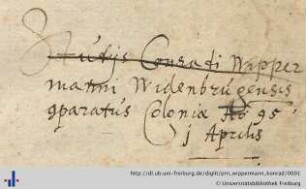 Studijs Conradi Wipper
manni Widenbrugensis
9paratus Coloniæ Ao 95
j Aprilis
http://dl.ub.uni-freiburg.de/diglit/pm_wippermann_konrad/0001
© Universitätsbibliothek Freiburg